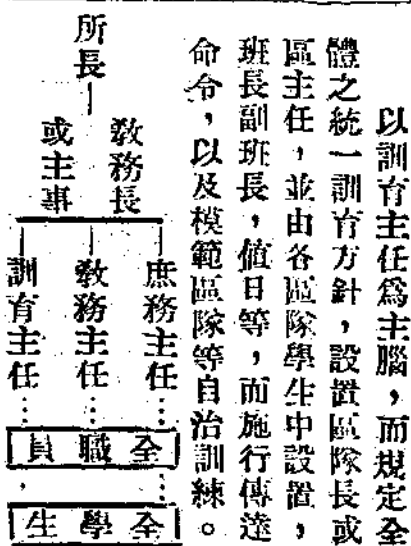 以訓育主任爲主腦，而規定全
體之統一訓育方針，設置區隊長或
區主任，並由各區隊學生中設置，
班長副班長，値日等，而施行傳達
命令，以及模範區隊等自治訓練。
所長
敎務長
或主事
庶務主任
敎務主任
訓育主任
全職員
全學生